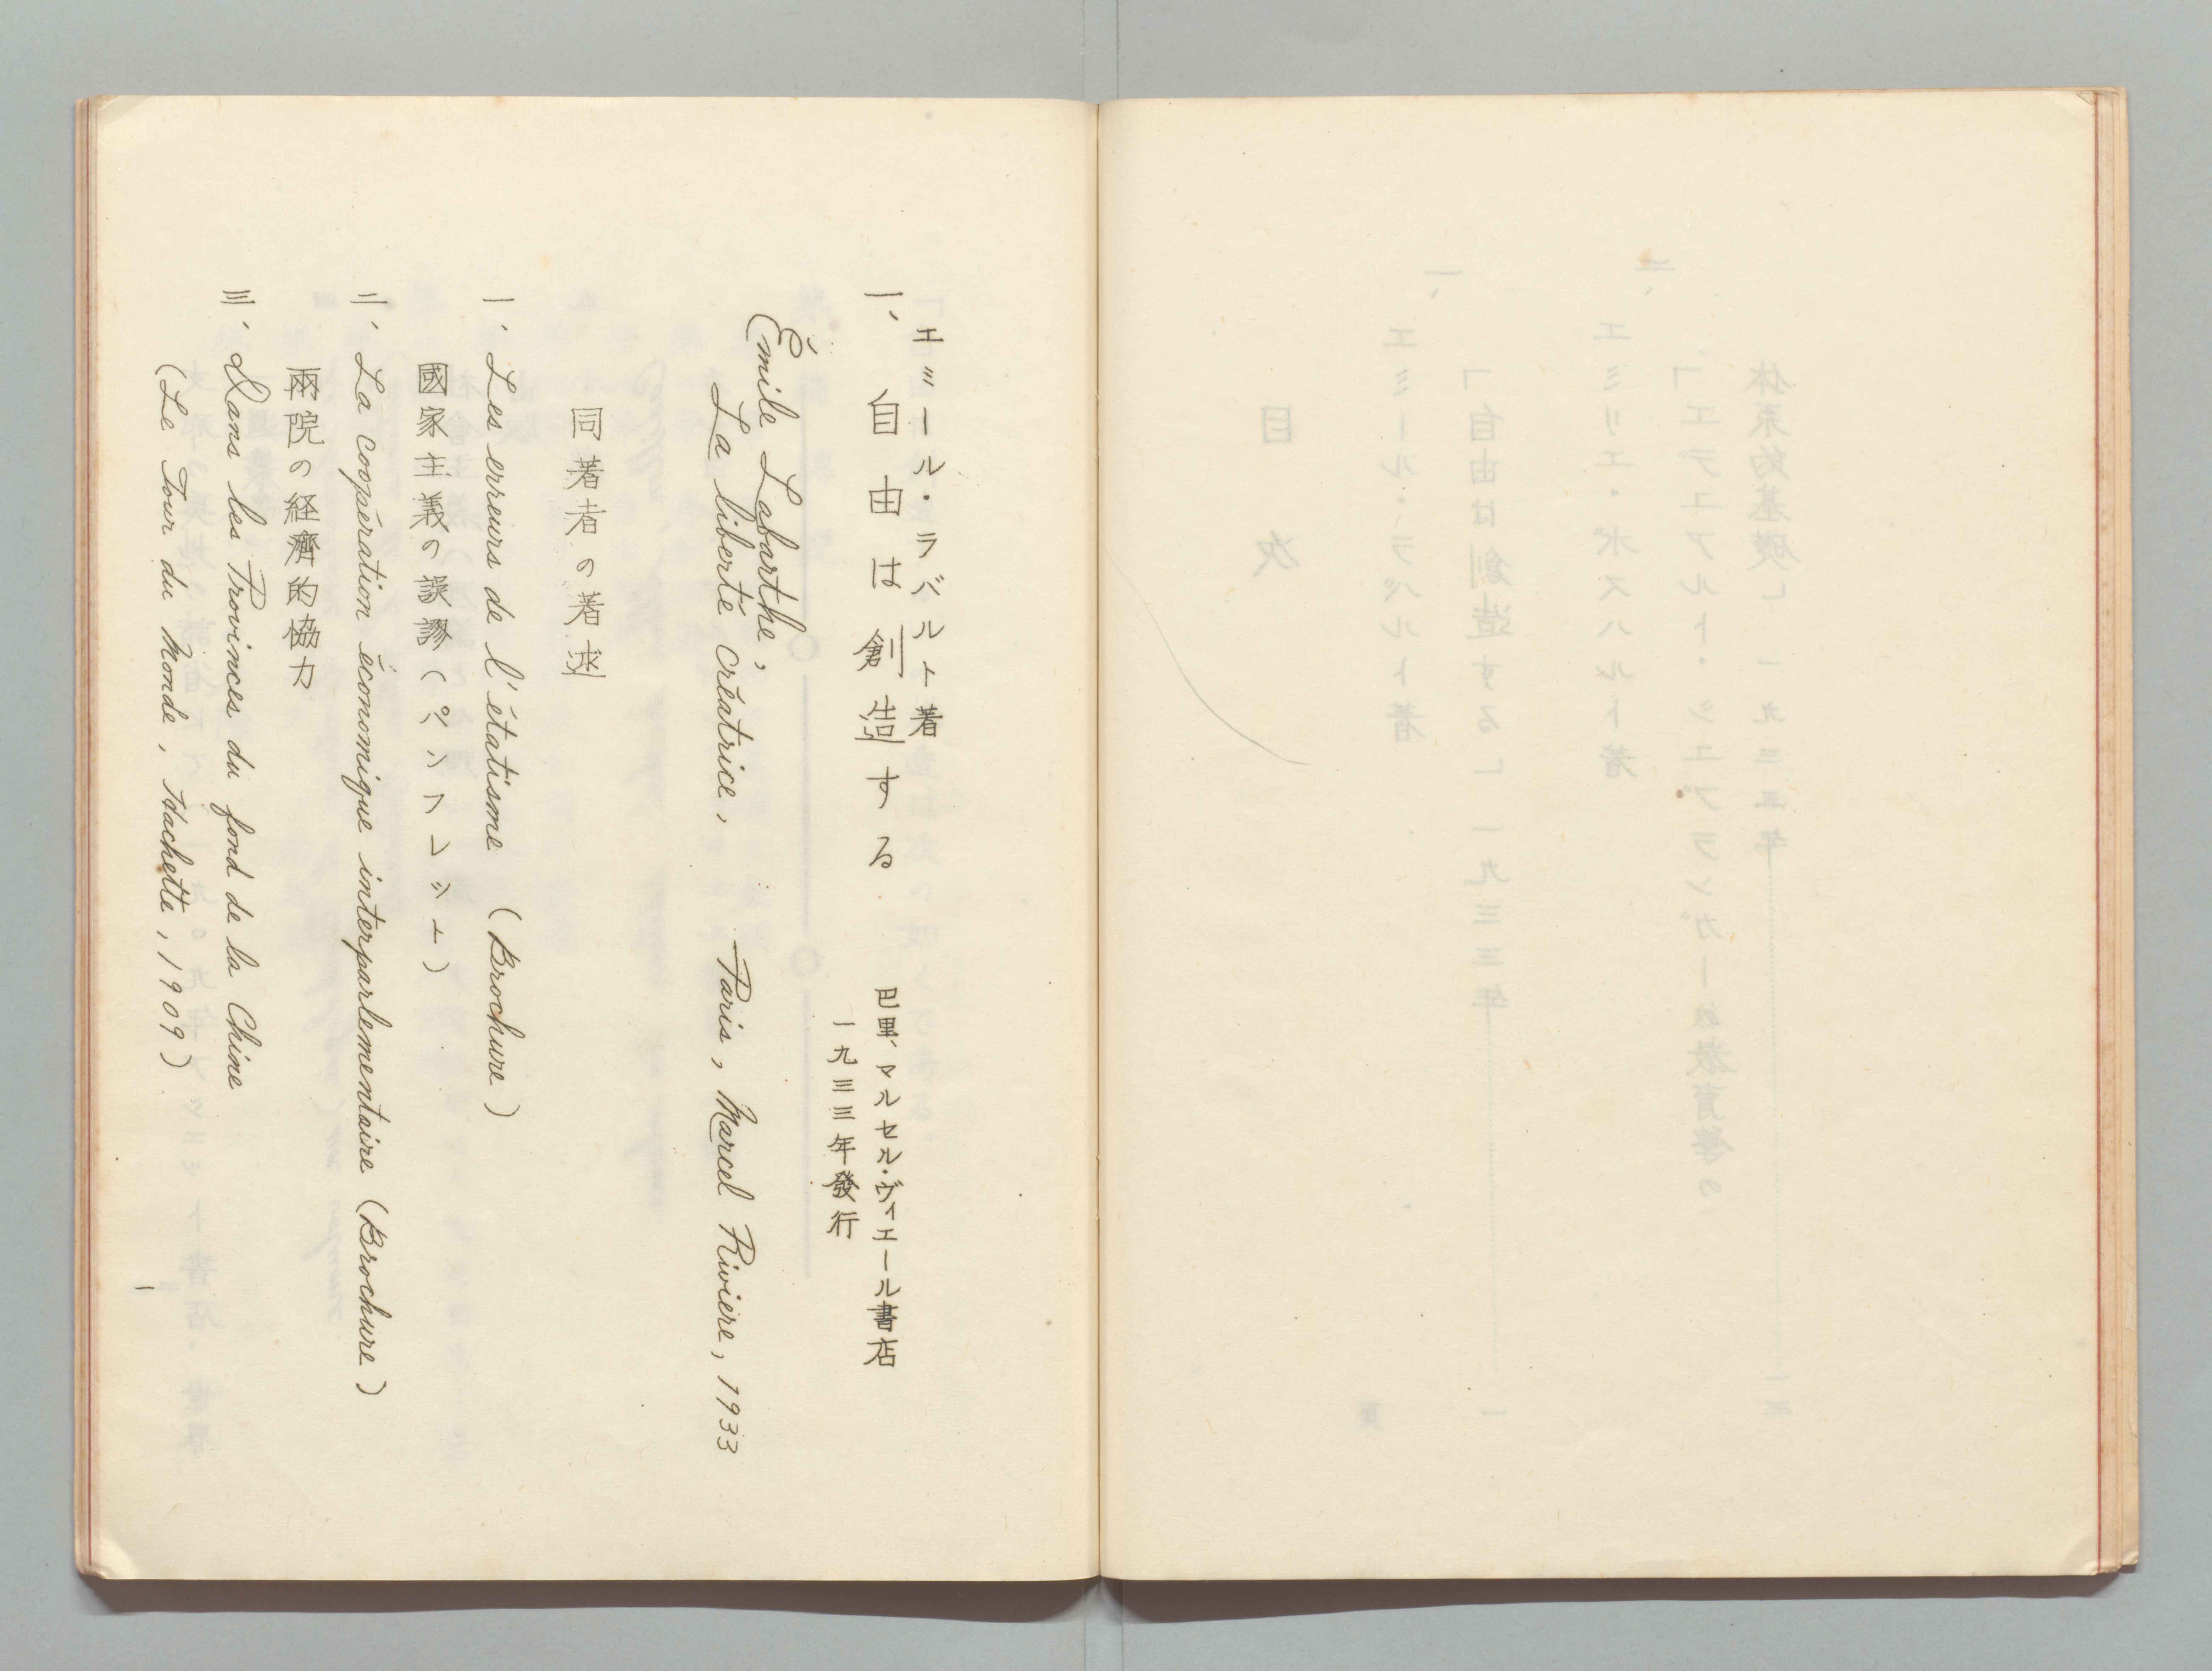 エミール・ラベルト著
一、自由は創造する 巴里、マルセル・ヴィエール書店
一九三三年發行
Émile Labarthe;
La liberté créatrice, Paris, Marcel Riviere, 1933
同著者の著述
一. Les erreurs de l'étatisme (Brochure)
國家主義の誤謬(パンフレット)
二. La coopération économique interparlementaire (Brochure)
兩院の経濟的恊力
三. Dans les Provinces du fond de la Chine
(Le Tour du Monde, Hachette, 1909)
一